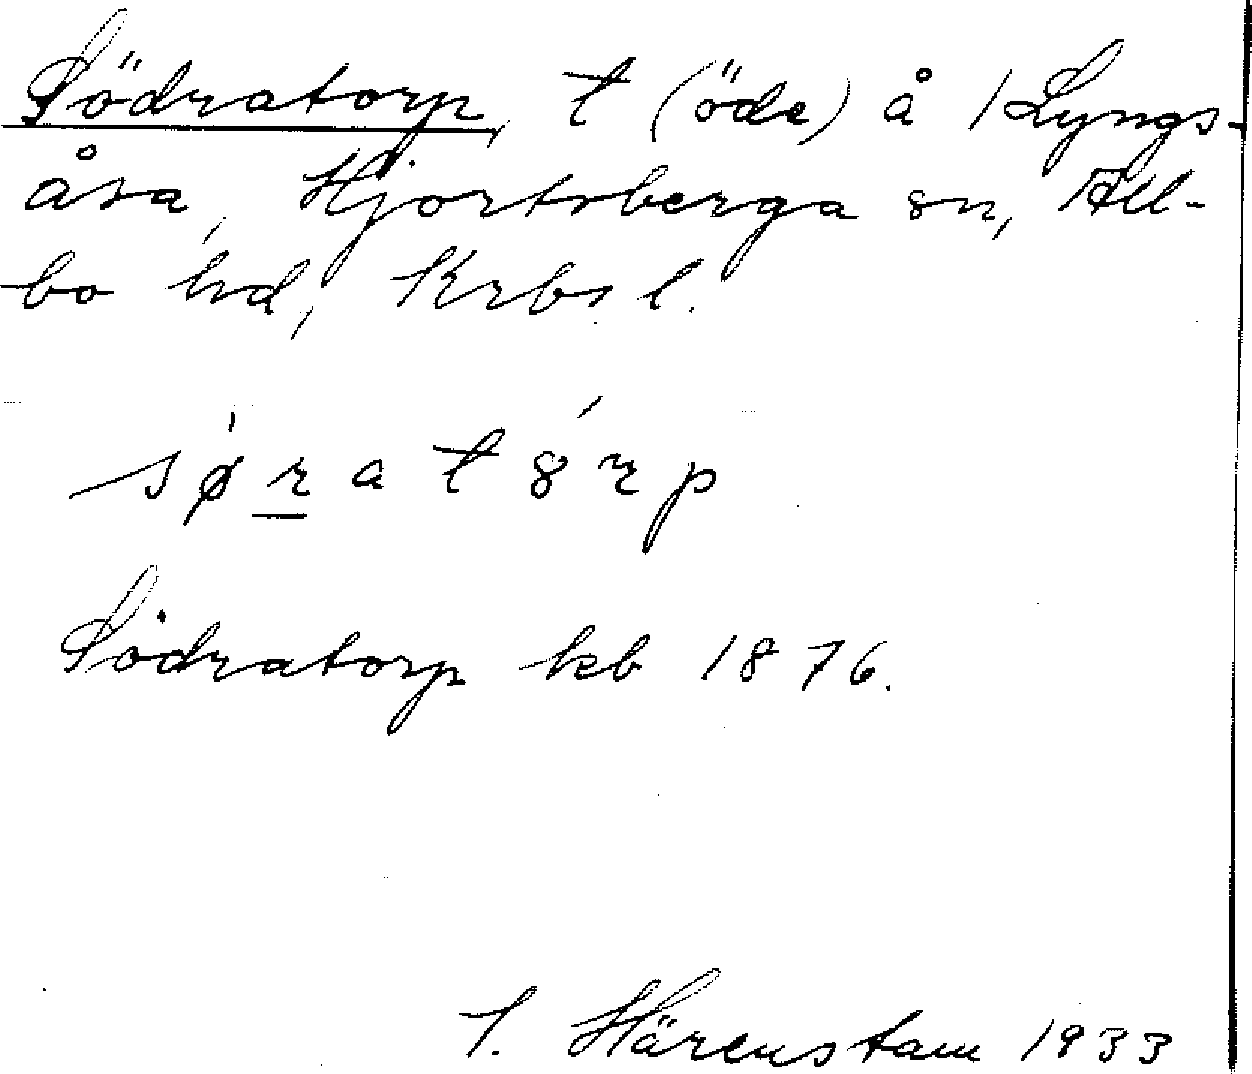 Södratorp, t (öde) å 1 Lyngs-
åsa, Hjortsberga sn, All-
bo hd, Krbs l.
sø̍ratȣ́rp
Södratorp kb 1876.
Härenstam 1933